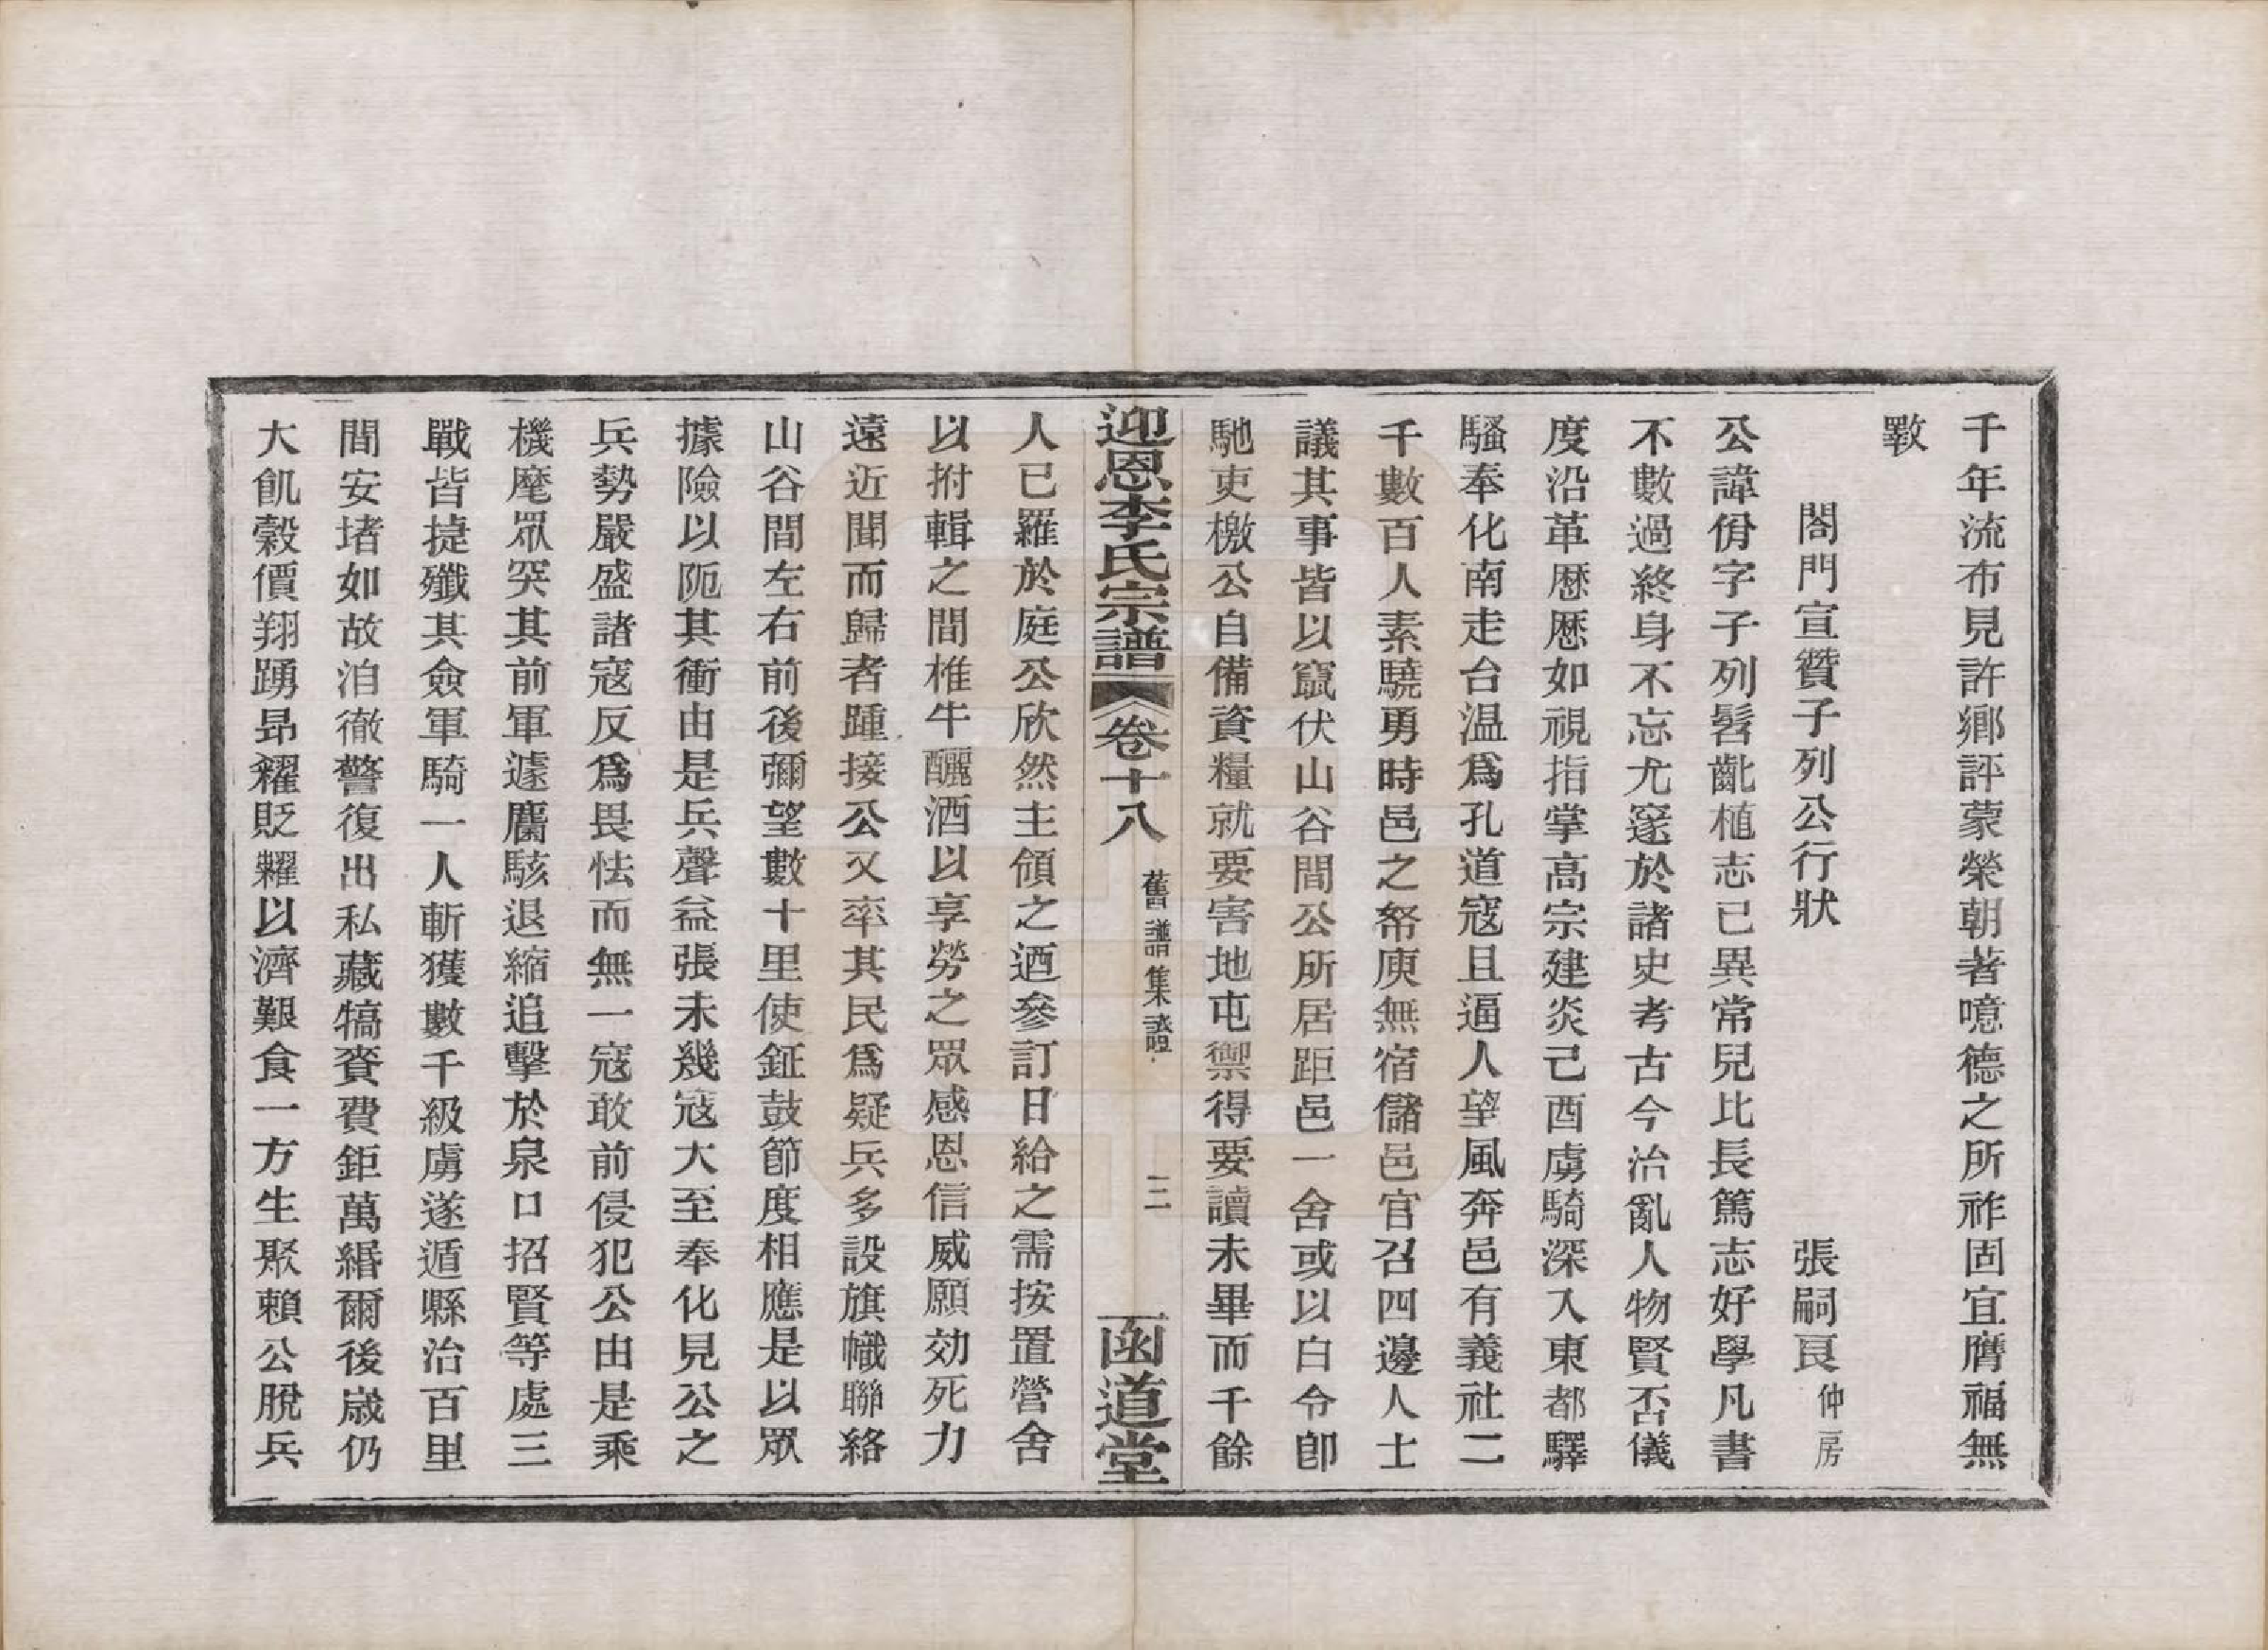 千年流布見許鄉評蒙榮朝著噫德之所祚固宜膺福無
斁
閤門宣贊子列公行狀　張嗣良仲房
公諱佾字子列髫齔植志已異常兒比長篤志好學凡書
不數過終身不忘尤邃於諸史考古今治亂人物賢否儀
度沿革歷歷如視指掌高宗建炎己酉虜騎深入東都驛
騷奉化南走台温爲孔道寇且逼人望風奔邑有義社二
千數百人素驍勇時邑之帑庾無宿儲邑官召四邊人士
議其事皆以竄伏山谷間公所居距邑一舍或以白令卽
馳吏檄公自備資糧就要害地屯禦得要讀未畢而千餘
迎恩李氏宗譜　卷十八　舊譜集證　三　函道堂
人已羅於庭公欣然主領之迺參訂日給之需按置營舍
以拊輯之間椎牛釃酒以享勞之眾感恩信威願効死力
遠近聞而歸者踵接公又率其民爲疑兵多設旗幟聯絡
山谷間左右前後彌望數十里使鉦鼓節度相應是以眾
據險以阨其衝由是兵聲益張未幾寇大至奉化見公之
兵勢嚴盛諸寇反爲畏怯而無一寇敢前侵犯公由是乘
機麾眾突其前軍遽麕駭退縮追擊於泉口招賢等處三
戰皆捷殲其僉軍騎一人斬獲數千級虜遂遁縣治百里
間安堵如故洎徹警復出私藏犒賚費鉅萬緡爾後歲仍
大飢穀價翔踴昻糴貶糶以濟艱食一方生聚賴公脫兵